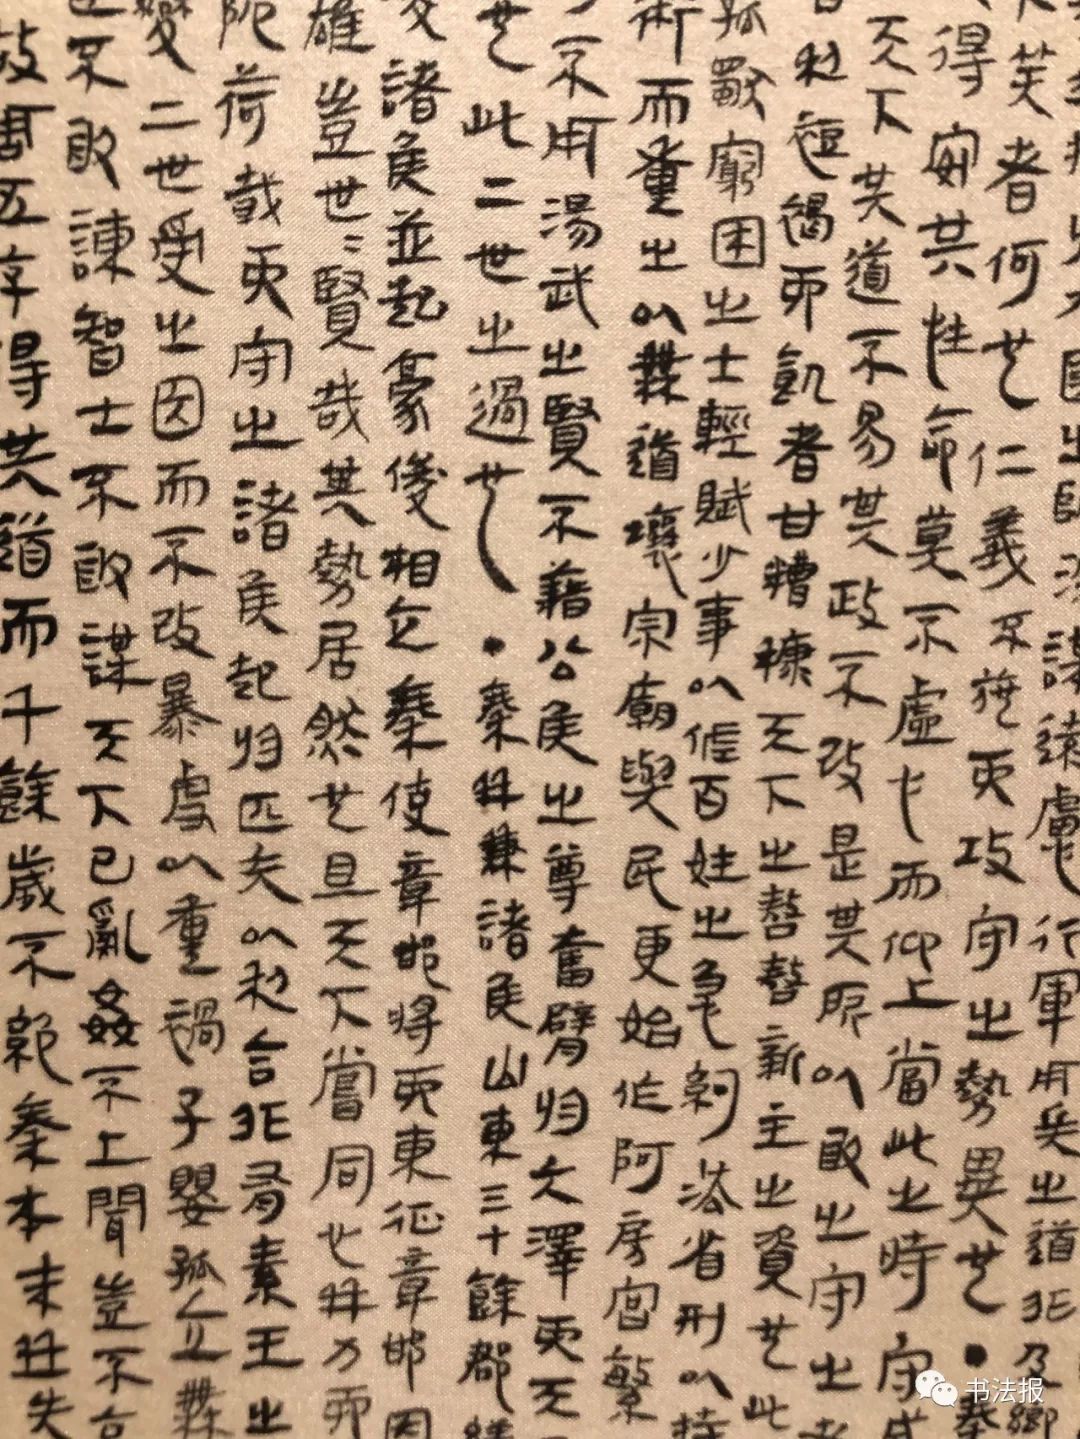 國之師深謀遠慮行軍用兵之道非及鄉
笑者何也仁義不施而攻守之勢異也·秦
得安其性命莫不虛心而仰上當此之時守威
天下其道不易其政不改是其所以取之守之者
利短褐而飢者甘糟糠天下之嗸嗸新主之資也此
孤獨窮困之士輕賦少事以佐百姓之急約法省刑以持
術而重之以無道壞宗廟與民更始作阿房宮繁
不用湯武之賢不藉公侯之尊奮臂於大澤而天
也此二世之過也·秦并兼諸侯山東三十餘郡繕
諸侯並起豪俊相立秦使章邯將而東征章邯因
雄豈世〻賢哉其勢居然也且天下嘗同心并力而
阨荷戟而守之諸侯起於匹夫以利合非有素王之
變二世受之因而不改暴虐以重禍子嬰孤立無
不敢諫智士不敢謀天下已亂姦不上聞豈不哀
故周五序得其道而千餘歲不絕秦本末并失
书法报